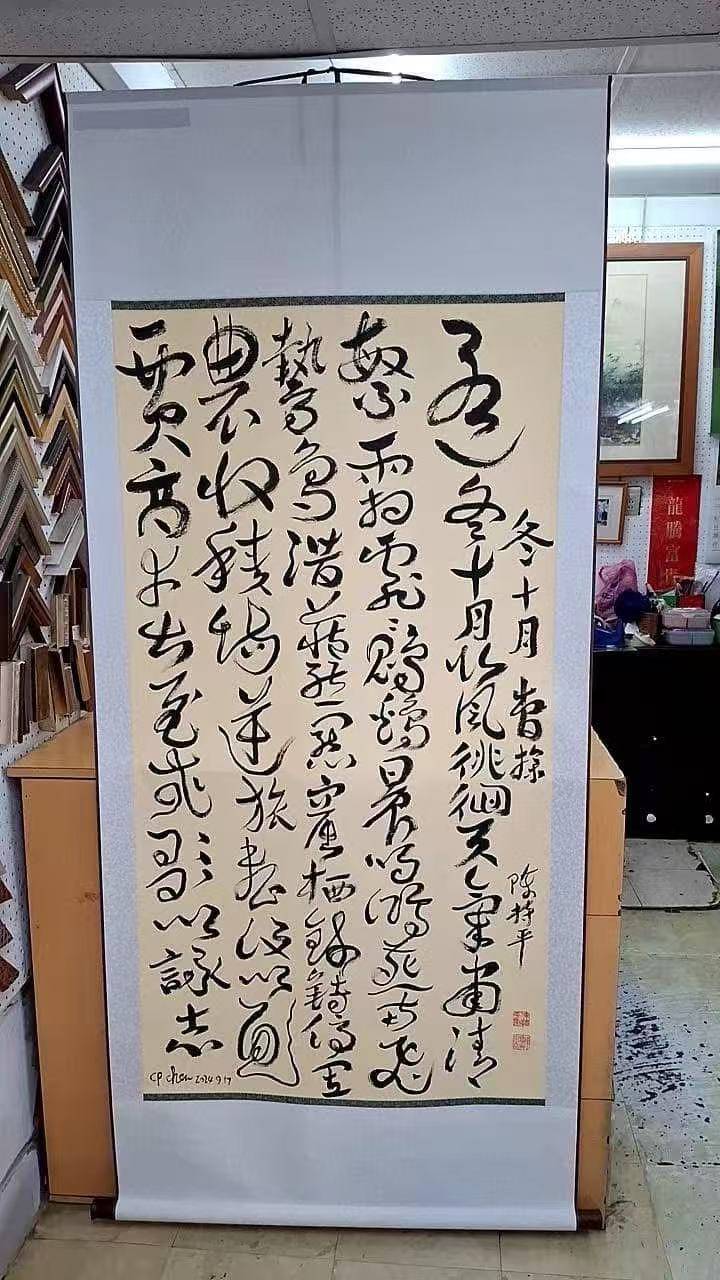 冬十月 曹操
陳持平
孟冬十月北風徘徊天氣肅清
繁霜霏霏鵾鷄晨鳴鴻雁南飛
鷙鳥潛藏熊羆窟栖錢鎛停置
農收積場逆旅整設以通
賈商幸甚至哉歌以詠志
CP chen 2024 9 17
龍騰富